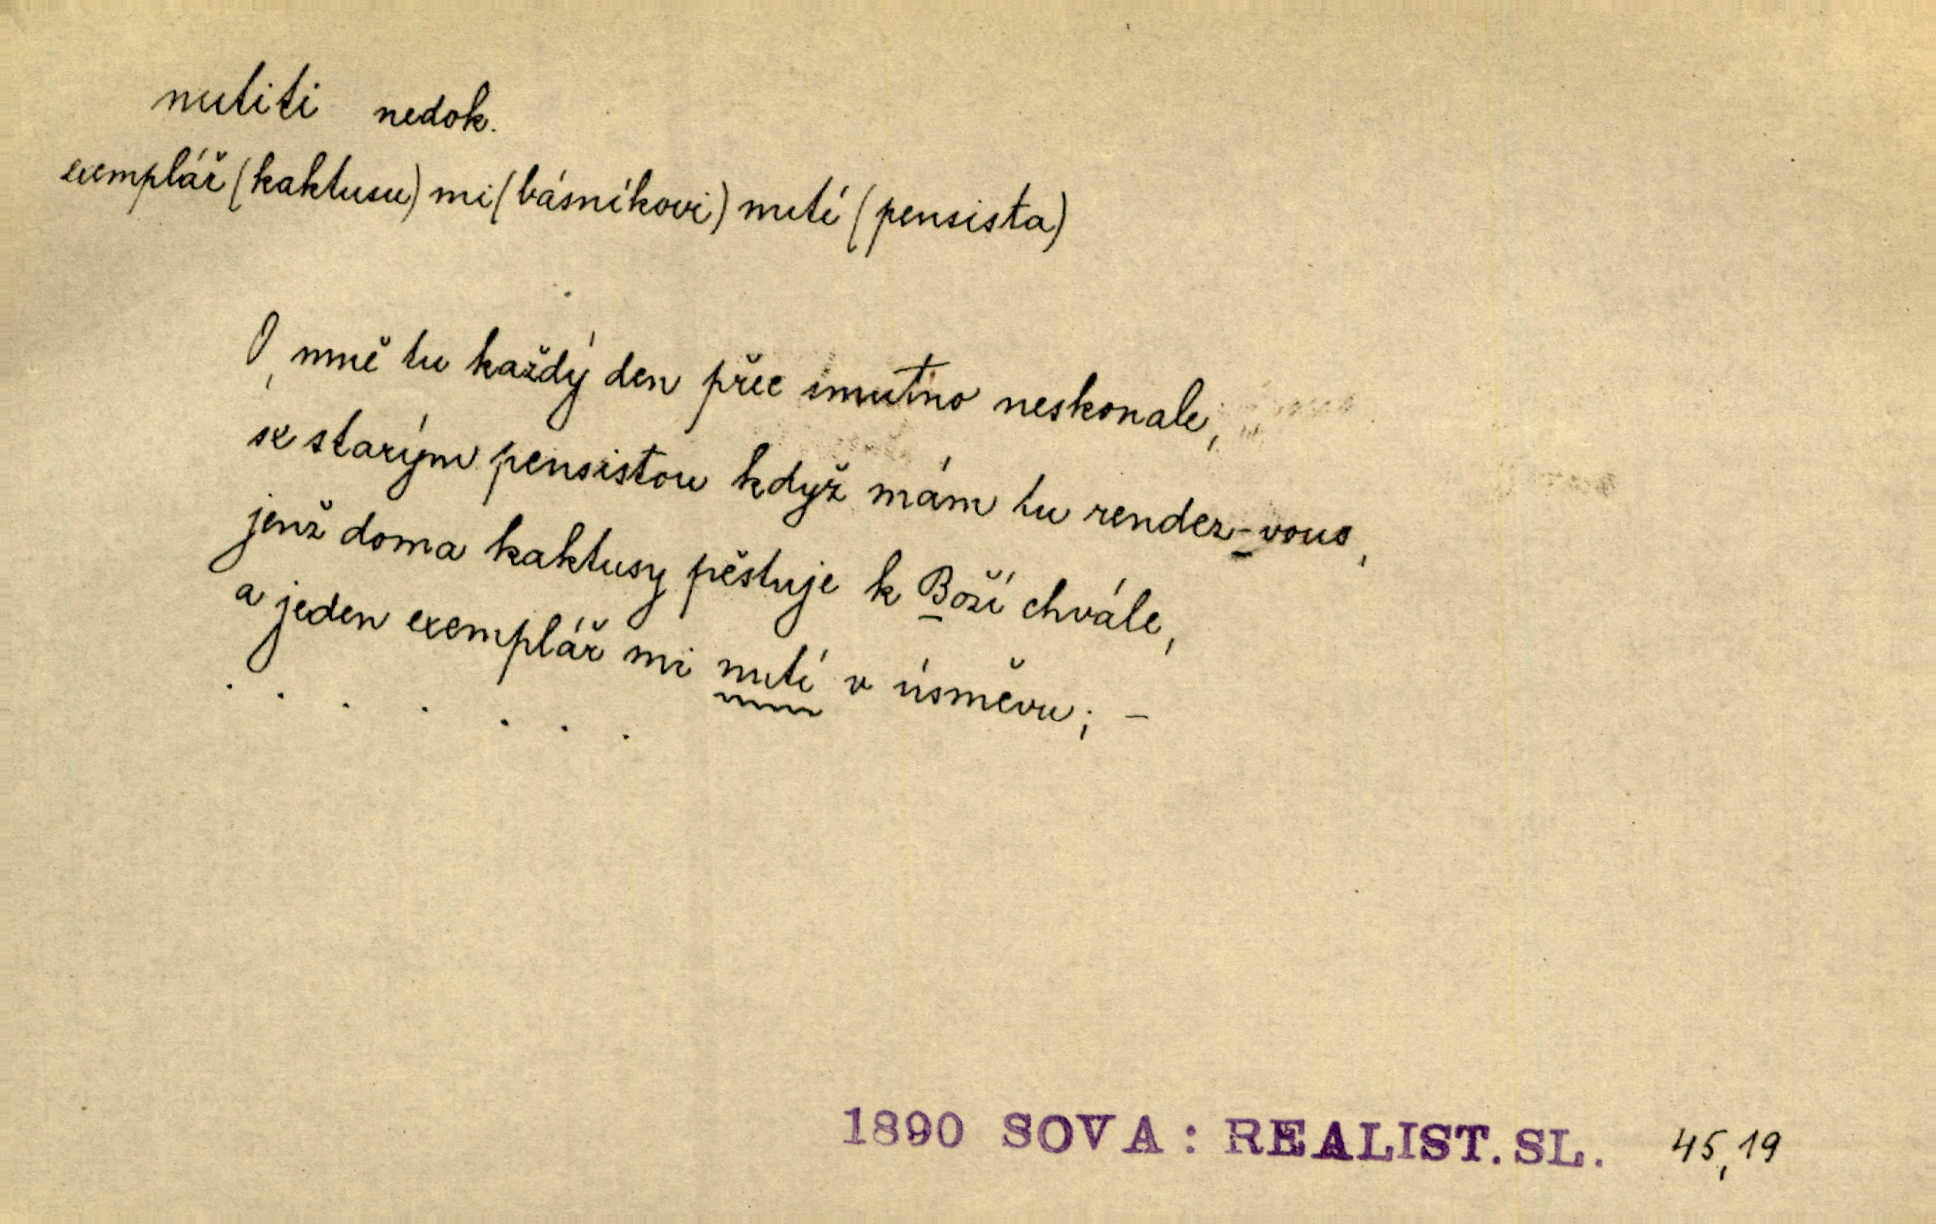 nutiti nedok.
exemplář (kaktusu) mi (básníkovi) nutí (pensista)
O, mně tu každý den přec smutno neskonale,
se starým pensistou když mám tu rendez-vous,
jenž doma kaktusy pěstuje k Boží chvále,
a jeden exemplář mi nutí v úsměvu; –
. . . . . . .
1890 SOVA: REALIST. SL. 45,19